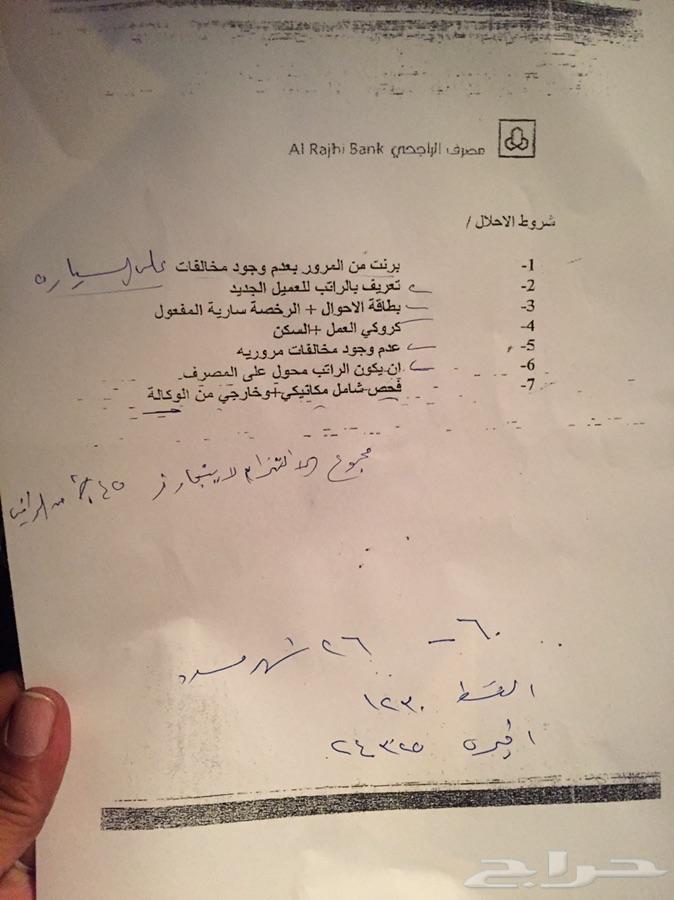 مصرف الراجحي Al Rajhi Bank
شروط الاحلال /
1- برنت من المرور بعدم وجود مخالفات على السياره
2- تعريف بالراتب للعميل الجديد
3- بطاقة الاحوال + الرخصة سارية المفعول
4- كروكي العمل +السكن
5- عدم وجود مخالفات مروريه
6- ان يكون الراتب محول على المصرف
7- فحص شامل مكانيكي+وخارجي من الوكالة
مجموع الالتزام لا يتجاوز ٤٥٪ من الراتب
٦٠ - ٢٦ شهر مسدد
القسط ١٢٣٠
الاخيره ٢٤٣٢٥
حراج